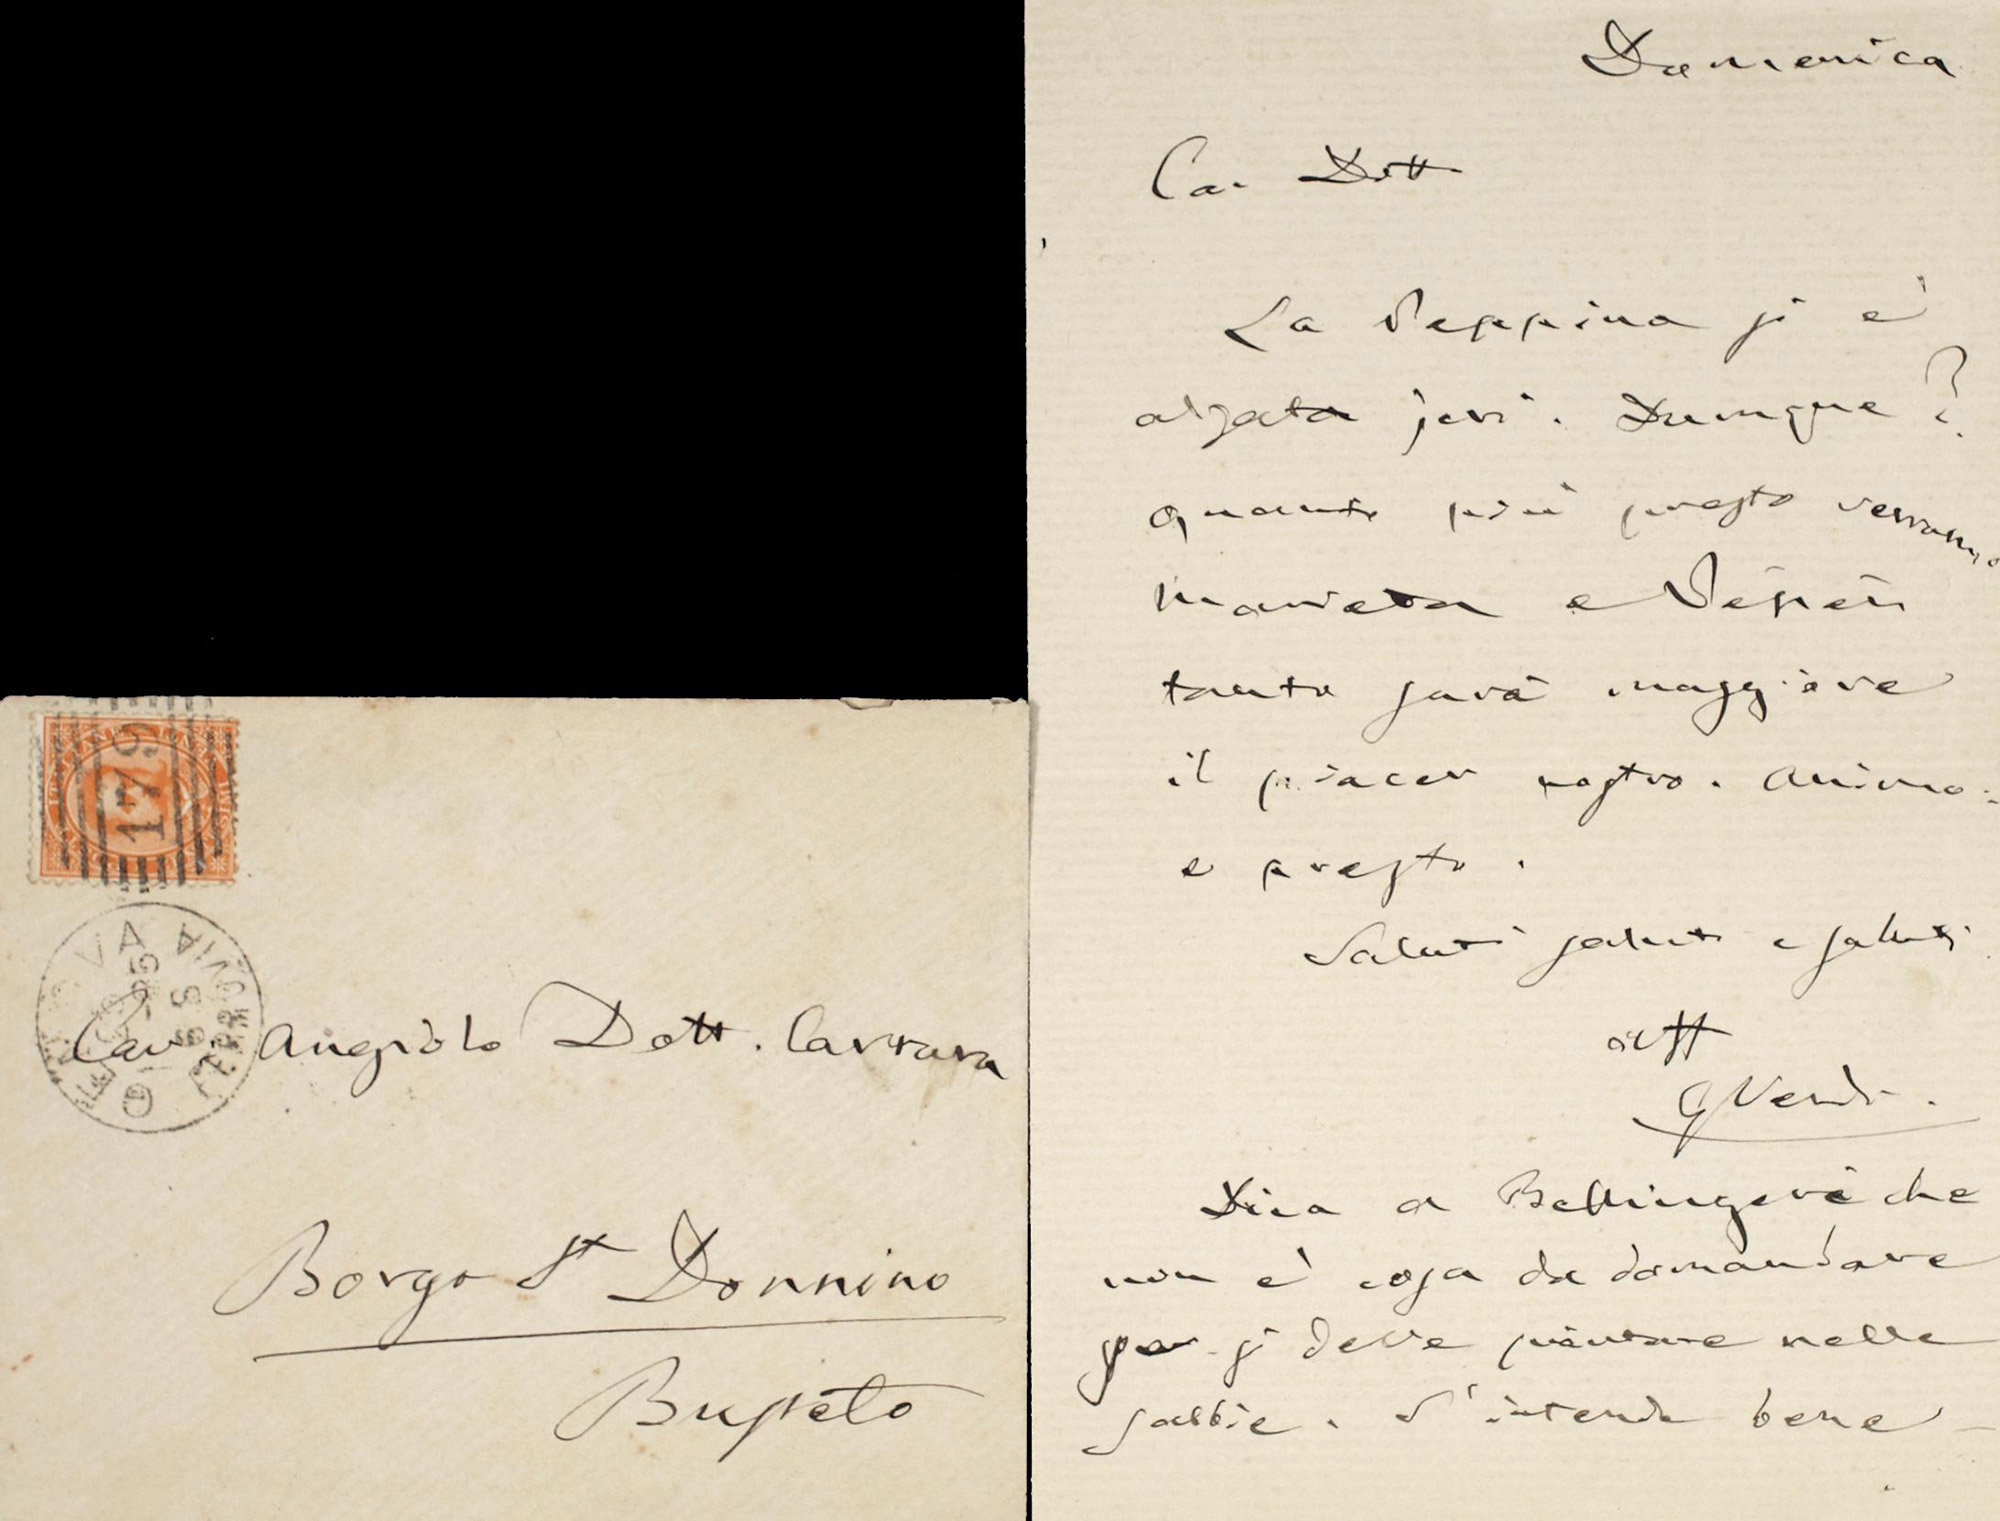 Domenica
Ca. Dott
La Peppina si è
alzata jeri. Dunque?
quanto più presto verranno
Marietta e
tanto sarà maggiore
il piacer nostro. Animo:
e presto.
Saluti saluti e saluti
aff
G Verdi.
Dica a Bellingeri che
non è cosa da domandare
si deve piantare nelle
sabbie. S'intende bene
179
GENOVA
FERROVIA
Cav Angiolo Dott. Carrara
Borgo St Donnino
Busseto